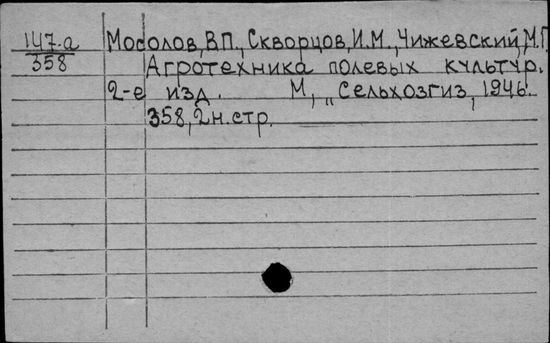 147-а Мосолов, В.П., Скворцов, И.М., Чижевский, М.Г.
358 Агротехника полевых культур.
2-е изд. М, „Сельхозгиз, 1946.
358, 2 н. стр.